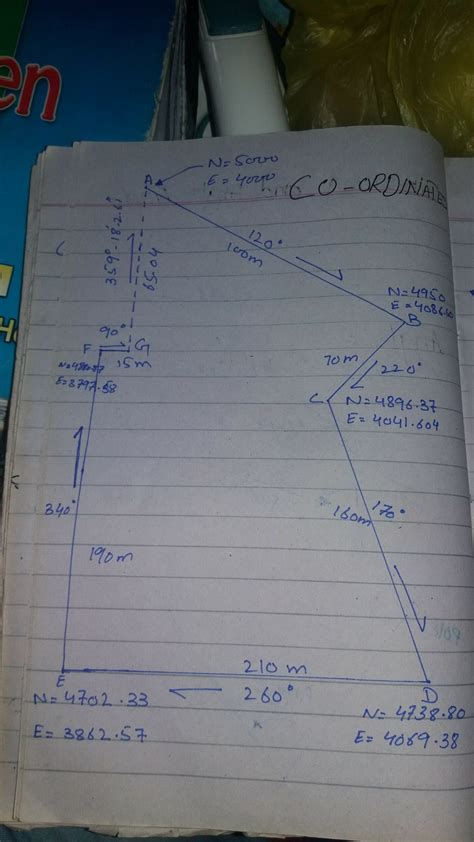 en
A
N=5000
E=4000
CO-ORDINATE
120°
100m
359°-18'-26"
65.04
N=4950
E=4086.60
B
90°
F
G
15m
E=3797.58
70m
220°
C
N=4896.37
E=4041.604
170°
160m
340°
190m
E
210 m
260°
D
N=4702.33
E=3862.57
N=4738.80
E=4069.38